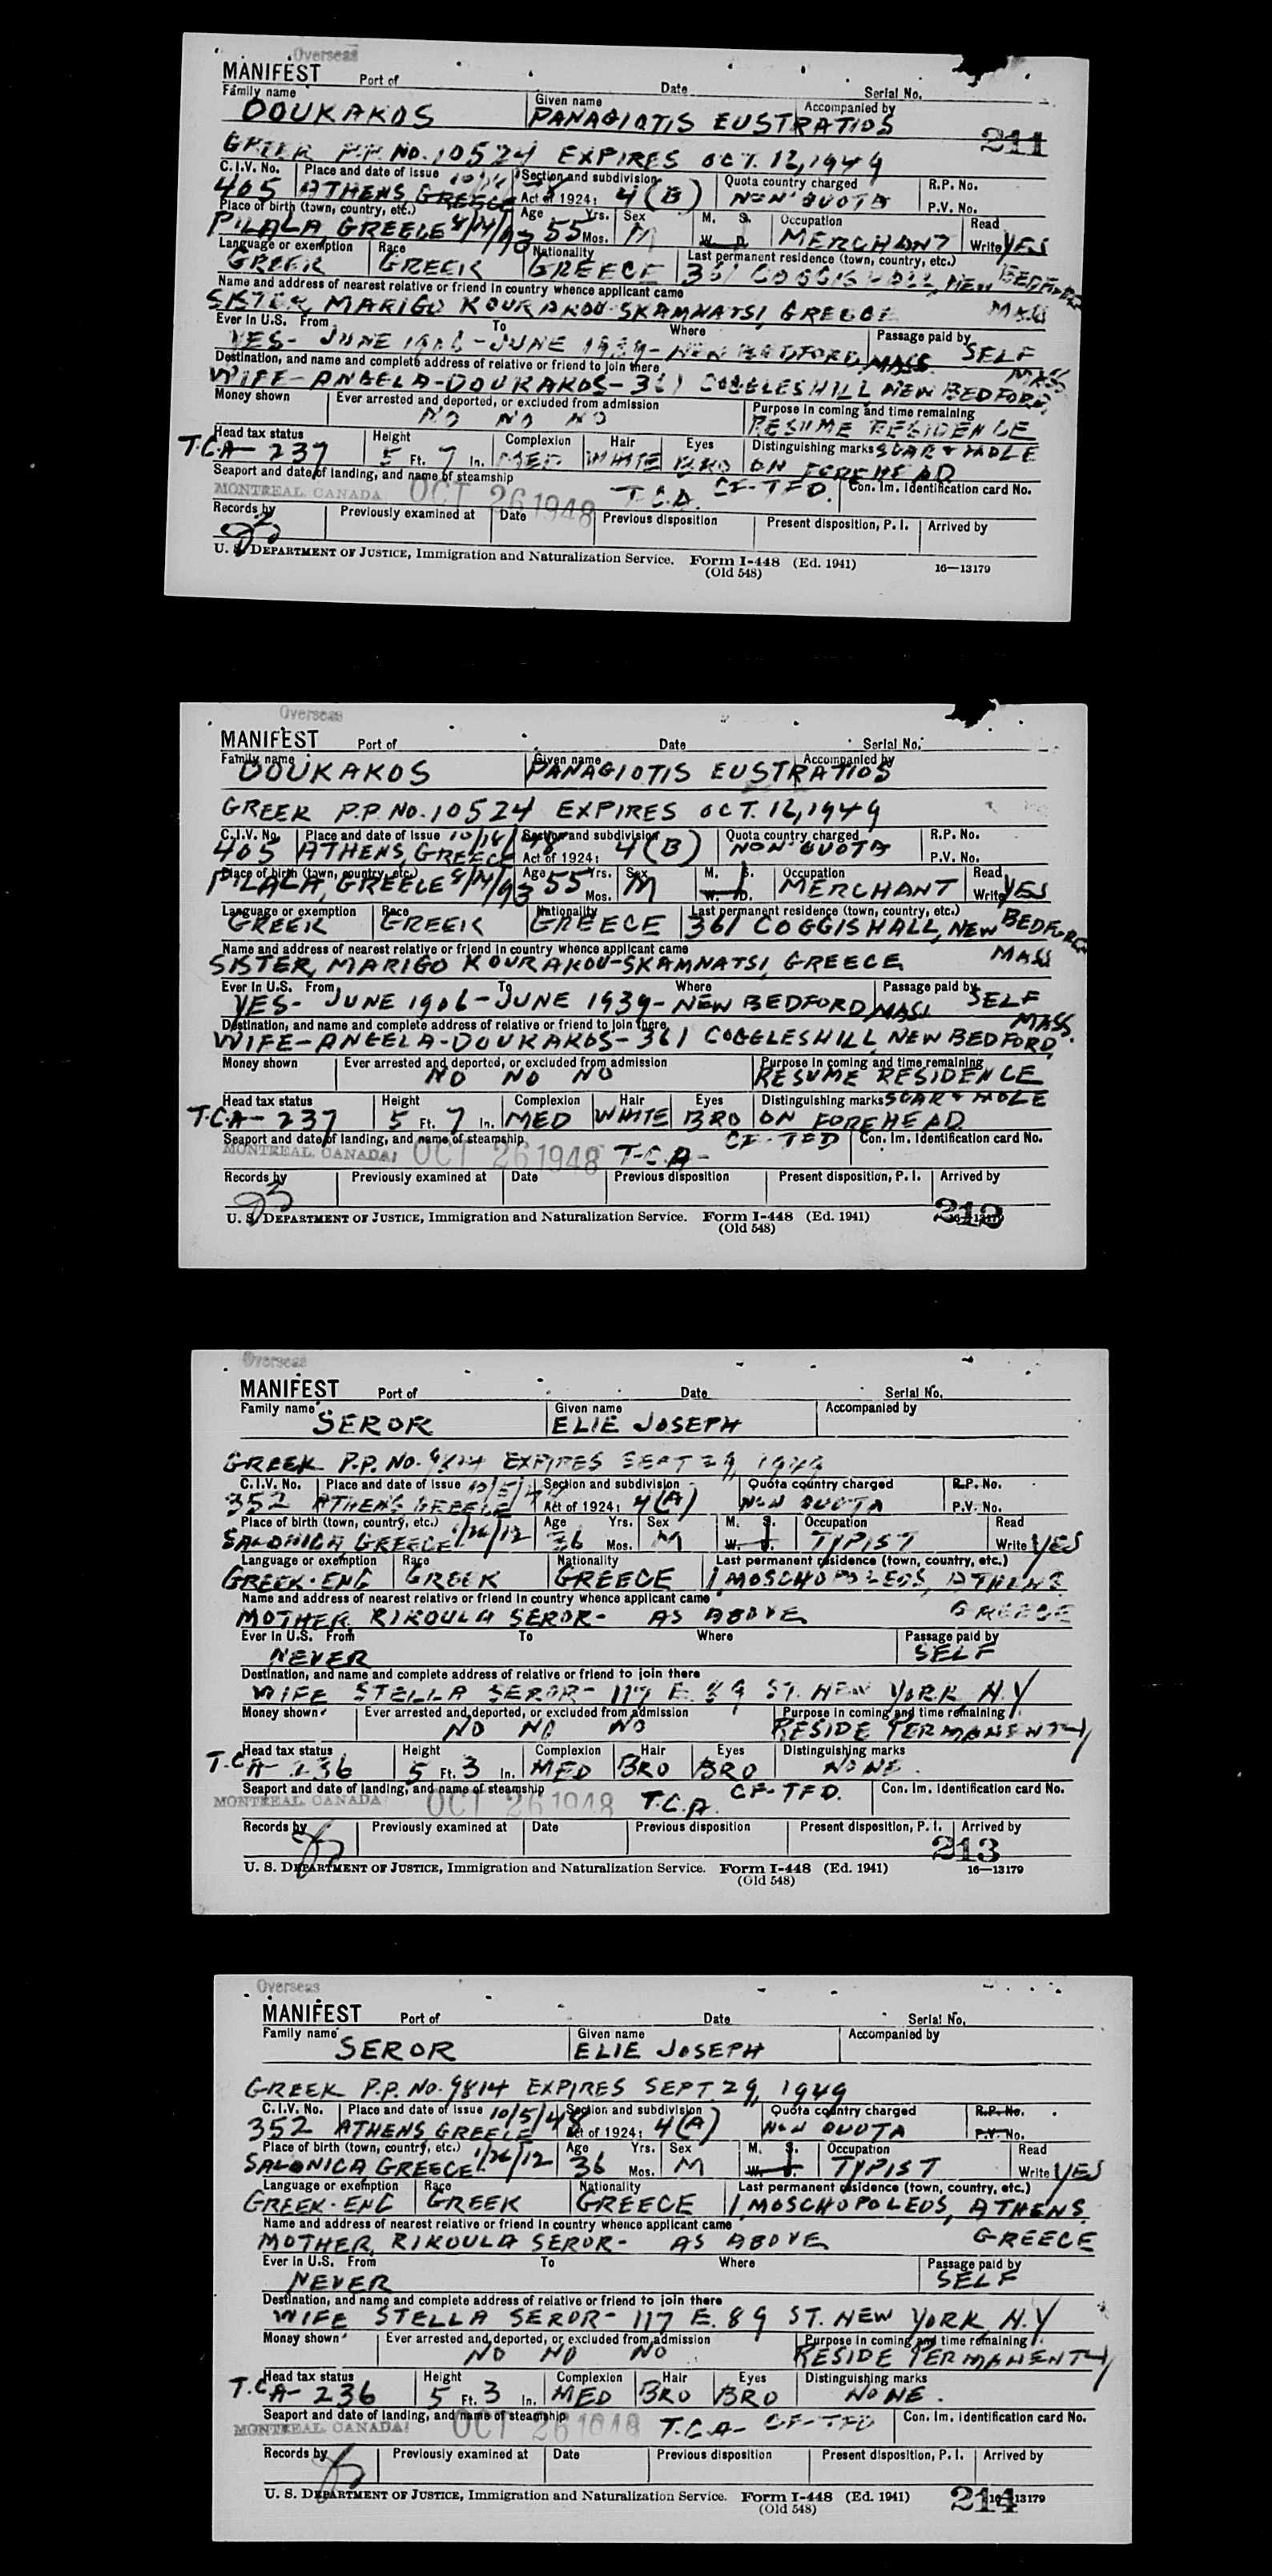 Overseas
MANIFEST Port of Date Serial No.
Family name Given name Accompanied by
DOUKAKOS PANAGIOTIS EUSTRATIOS
211
GREEK P.P. NO. 10524 EXPIRES OCT. 12, 1949
C.I.V. No. Place and date of issue Section and subdivision Quota country charged R.P. No.
405 ATHENS, GREECE Act of 1924: 4(B) NON QUOTA P.V. No.
Place of birth (town, country, etc.) Age Yrs. Sex M. S. Occupation Read
PILALA GREECE 8/14/93 55 Mos. M W. D. MERCHANT Write YES
Language or exemption Race Nationality Last permanent residence (town, country, etc.)
GREEK GREEK GREECE 361 COGGISHALL, NEW BEDFORD
Name and address of nearest relative or friend in country whence applicant came
SISTER, MARIGO KOURAKOU-SKAMNATSI, GREECE MASS
Ever in U.S. From To Where Passage paid by
YES- JUNE 1906-JUNE 1939-NEW BEDFORD, MASS. SELF
Destination, and name and complete address of relative or friend to join there MASS
WIFE-ANGELA-DOUKAKOS-361 COGGLESHILL NEW BEDFORD,
Money shown Ever arrested and deported, or excluded from admission Purpose in coming and time remaining
NO NO NO RESUME RESIDENCE
Head tax status Height Complexion Hair Eyes Distinguishing marks SCAR & MOLE
T.C.A-237 5 Ft. 7 In. MED WHITE BRO ON FOREHEAD
Seaport and date of landing, and name of steamship Con. Im. Identification card No.
MONTREAL CANADA OCT 26 1948 T.C.A. CF-TFD.
Records by Previously examined at Date Previous disposition Present disposition, P. I. Arrived by
U. S. DEPARTMENT OF JUSTICE, Immigration and Naturalization Service. Form I-448 (Ed. 1941) 16—13179
(Old 548)
Overseas
MANIFEST Port of Date Serial No.
Family name Given name Accompanied by
DOUKAKOS PANAGIOTIS EUSTRATIOS
GREEK P.P. NO. 10524 EXPIRES OCT. 12, 1949
C.I.V. No. Place and date of issue 10/16/48 Section and subdivision Quota country charged R.P. No.
405 ATHENS, GREECE Act of 1924: 4(B) NON QUOTA P.V. No.
Place of birth (town, country, etc.) Age Yrs. Sex M. S. Occupation Read
PILALA, GREECE 8/14/93 55 Mos. M W. D. MERCHANT Write YES
Language or exemption Race Nationality Last permanent residence (town, country, etc.)
GREEK GREEK GREECE 361 COGGISHALL, NEW BEDFORD
Name and address of nearest relative or friend in country whence applicant came MASS
SISTER, MARIGO KOURAKOU-SKAMNATSI, GREECE
Ever in U.S. From To Where Passage paid by
YES- JUNE 1906-JUNE 1939-NEW BEDFORD, MASS SELF
Destination, and name and complete address of relative or friend to join there MASS.
WIFE-ANGELA-DOUKAKOS-361 COGGLESHILL NEW BEDFORD,
Money shown Ever arrested and deported, or excluded from admission Purpose in coming and time remaining
NO NO NO RESUME RESIDENCE
Head tax status Height Complexion Hair Eyes Distinguishing marks SCAR & MOLE
T.C.A-237 5 Ft. 7 In. MED WHITE BRO ON FOREHEAD
Seaport and date of landing, and name of steamship Con. Im. Identification card No.
MONTREAL, CANADA OCT 26 1948 T.C.A- CF-TFD
Records by Previously examined at Date Previous disposition Present disposition, P. I. Arrived by
U. S. DEPARTMENT OF JUSTICE, Immigration and Naturalization Service. Form I-448 (Ed. 1941) 212
(Old 548)
Overseas
MANIFEST Port of Date Serial No.
Family name Given name Accompanied by
SEROR ELIE JOSEPH
GREEK P.P. NO. 9814 EXPIRES SEPT 29, 1949
C.I.V. No. Place and date of issue 10/5/48 Section and subdivision Quota country charged R.P. No.
352 ATHENS GREECE Act of 1924: 4(A) NON QUOTA P.V. No.
Place of birth (town, country, etc.) Age Yrs. Sex M. S. Occupation Read
SALONICA GREECE 1/26/12 36 Mos. M W. D. TYPIST Write YES
Language or exemption Race Nationality Last permanent residence (town, country, etc.)
GREEK-ENG GREEK GREECE 1 MOSCHOPOLEOS, ATHENS
Name and address of nearest relative or friend in country whence applicant came GREECE
MOTHER, RIKOULA SEROR- AS ABOVE
Ever in U.S. From To Where Passage paid by
NEVER SELF
Destination, and name and complete address of relative or friend to join there
WIFE STELLA SEROR- 117 E. 89 ST. NEW YORK, N.Y
Money shown Ever arrested and deported, or excluded from admission Purpose in coming and time remaining
NO NO NO RESIDE PERMANENTLY
Head tax status Height Complexion Hair Eyes Distinguishing marks
T.C.A- 236 5 Ft. 3 In. MED BRO BRO NONE.
Seaport and date of landing, and name of steamship Con. Im. Identification card No.
MONTREAL CANADA OCT 26 1948 T.C.A. CF-TFD.
Records by Previously examined at Date Previous disposition Present disposition, P. I. Arrived by
213
U. S. DEPARTMENT OF JUSTICE, Immigration and Naturalization Service. Form I-448 (Ed. 1941) 16—13179
(Old 548)
Overseas
MANIFEST Port of Date Serial No.
Family name Given name Accompanied by
SEROR ELIE JOSEPH
GREEK P.P. NO. 9814 EXPIRES SEPT 29, 1949
C.I.V. No. Place and date of issue 10/5/48 Section and subdivision Quota country charged R.P. No.
352 ATHENS GREECE Act of 1924: 4(A) NON QUOTA P.V. No.
Place of birth (town, country, etc.) Age Yrs. Sex M. S. Occupation Read
SALONICA, GREECE 1/26/12 36 Mos. M W. D. TYPIST Write YES
Language or exemption Race Nationality Last permanent residence (town, country, etc.)
GREEK-ENG GREEK GREECE 1 MOSCHOPOLEOS, ATHENS,
Name and address of nearest relative or friend in country whence applicant came GREECE
MOTHER, RIKOULA SEROR- AS ABOVE
Ever in U.S. From To Where Passage paid by
NEVER SELF
Destination, and name and complete address of relative or friend to join there
WIFE STELLA SEROR- 117 E. 89 ST. NEW YORK, N.Y
Money shown Ever arrested and deported, or excluded from admission Purpose in coming and time remaining
NO NO NO RESIDE PERMANENTLY
Head tax status Height Complexion Hair Eyes Distinguishing marks
T.C.A- 236 5 Ft. 3 In. MED BRO BRO NONE.
Seaport and date of landing, and name of steamship Con. Im. Identification card No.
MONTREAL CANADA OCT 26 1948 T.C.A- CF-TFD
Records by Previously examined at Date Previous disposition Present disposition, P. I. Arrived by
U. S. DEPARTMENT OF JUSTICE, Immigration and Naturalization Service. Form I-448 (Ed. 1941) 214 13179
(Old 548)